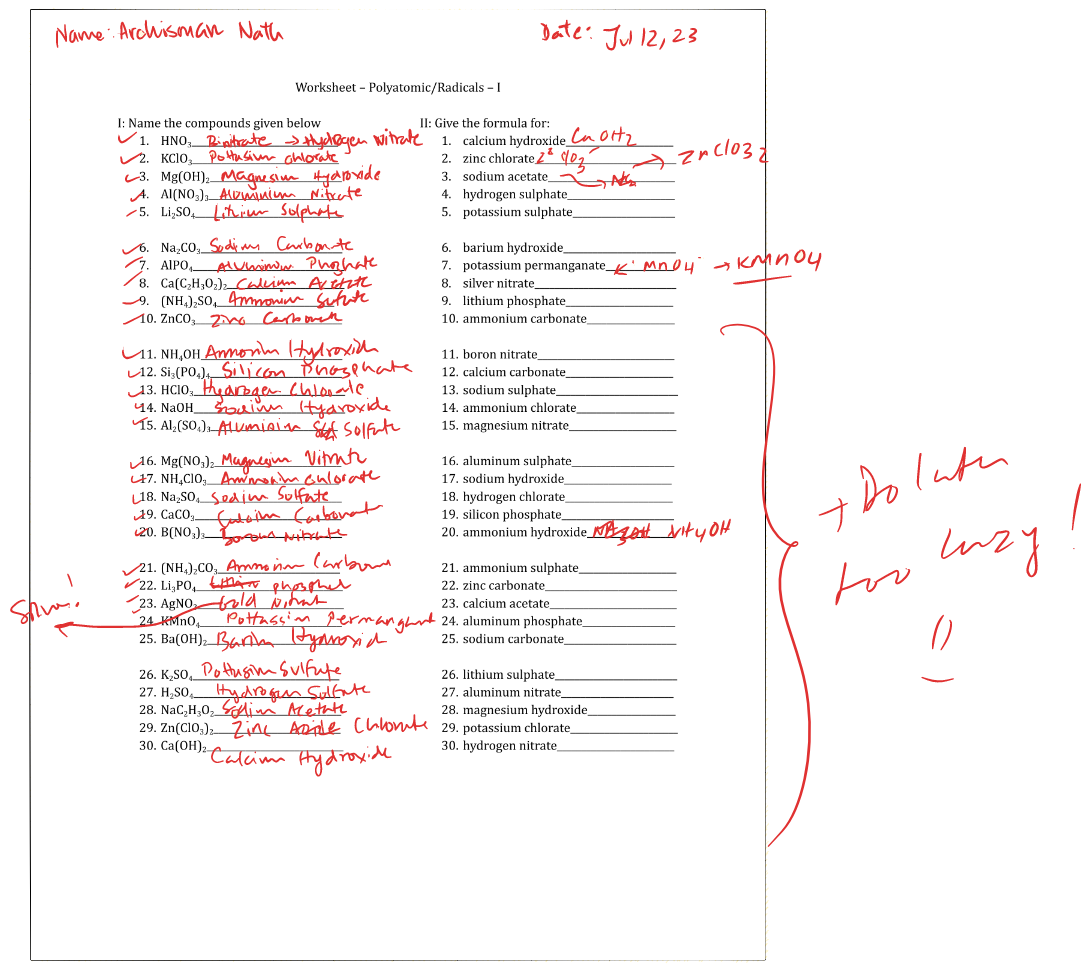 Name: Archisman Nath Date: Jul 12, 23
Worksheet – Polyatomic/Radicals – I
I: Name the compounds given below
1. HNO₃ Binitrate → Hydrogen Nitrate
2. KClO₃ Pottasium Chlorate
3. Mg(OH)₂ Magnesium Hydroxide
4. Al(NO₃)₃ Aluminium Nitrate
5. Li₂SO₄ Lithium Sulphate
6. Na₂CO₃ Sodium Carbonate
7. AlPO₄ Aluminum Phosphate
8. Ca(C₂H₃O₂)₂ Calcium Acetate
9. (NH₄)₂SO₄ Ammonium Sulfate
10. ZnCO₃ Zinc Carbonate
11. NH₄OH Ammonium Hydroxid
12. Si₃(PO₄)₄ Silicon Phosphate
13. HClO₃ Hydrogen Chlorate
14. NaOH Sodium Hydroxide
15. Al₂(SO₄)₃ Aluminium Sulfate
16. Mg(NO₃)₂ Magnesium Nitrate
17. NH₄ClO₃ Ammonium Chlorate
18. Na₂SO₄ Sodium Sulfate
19. CaCO₃ Calcium Carbonate
20. B(NO₃)₃ Boron Nitrate
21. (NH₄)₂CO₃ Ammonium Carbonate
22. Li₃PO₄
23. AgNO₃ Gold Nitrat
24. KMnO₄ Pottassium Permanganat
25. Ba(OH)₂ Barium Hydroxid
26. K₂SO₄ Pottasium Sulfate
27. H₂SO₄ Hydrogen Sulfate
28. NaC₂H₃O₂ Sodium Acetate
29. Zn(ClO₃)₂ Zinc Chlorate
30. Ca(OH)₂
Calcium Hydroxide
II: Give the formula for:
1. calcium hydroxide Ca OH2
2. zinc chlorate ClO3 → ZnClO3 2
3. sodium acetate
4. hydrogen sulphate
5. potassium sulphate
6. barium hydroxide
7. potassium permanganate K⁺ MnO4⁻ → KMnO4
8. silver nitrate
9. lithium phosphate
10. ammonium carbonate
11. boron nitrate
12. calcium carbonate
13. sodium sulphate
14. ammonium chlorate
15. magnesium nitrate
16. aluminum sulphate
17. sodium hydroxide
18. hydrogen chlorate
19. silicon phosphate
20. ammonium hydroxide NH4OH
21. ammonium sulphate
22. zinc carbonate
23. calcium acetate
24. aluminum phosphate
25. sodium carbonate
26. lithium sulphate
27. aluminum nitrate
28. magnesium hydroxide
29. potassium chlorate
30. hydrogen nitrate
→ Do later
too lazy!